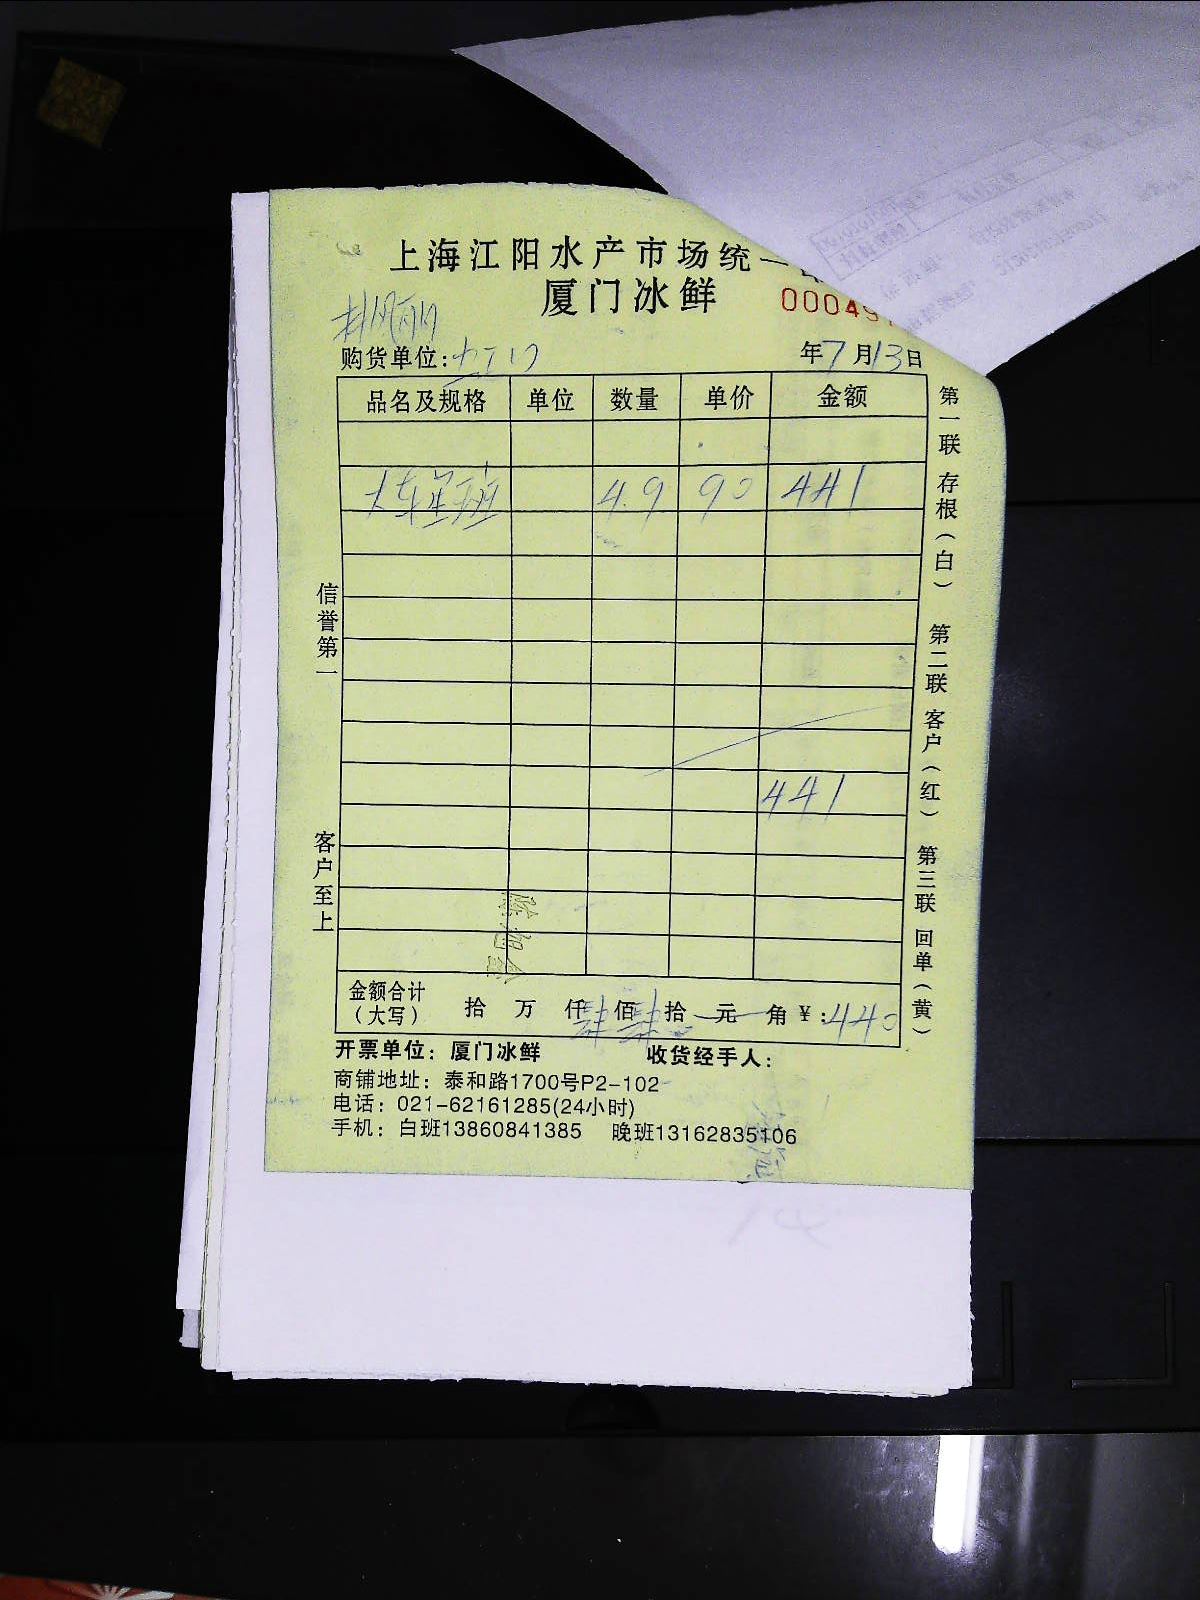 上海江阳水产市场统一
厦门冰鲜
00049
购货单位:虹口 年7月13日
品名及规格 单位 数量 单价 金额
4.9 90 441
441
金额合计（大写） 拾 万 仟肆佰肆拾 元 角 ¥:440
开票单位：厦门冰鲜 收货经手人：
商铺地址：泰和路1700号P2-102
电话：021-62161285(24小时)
手机：白班13860841385 晚班13162835106
信誉第一
客户至上
第一联 存根（白） 第二联 客户（红） 第三联 回单（黄）